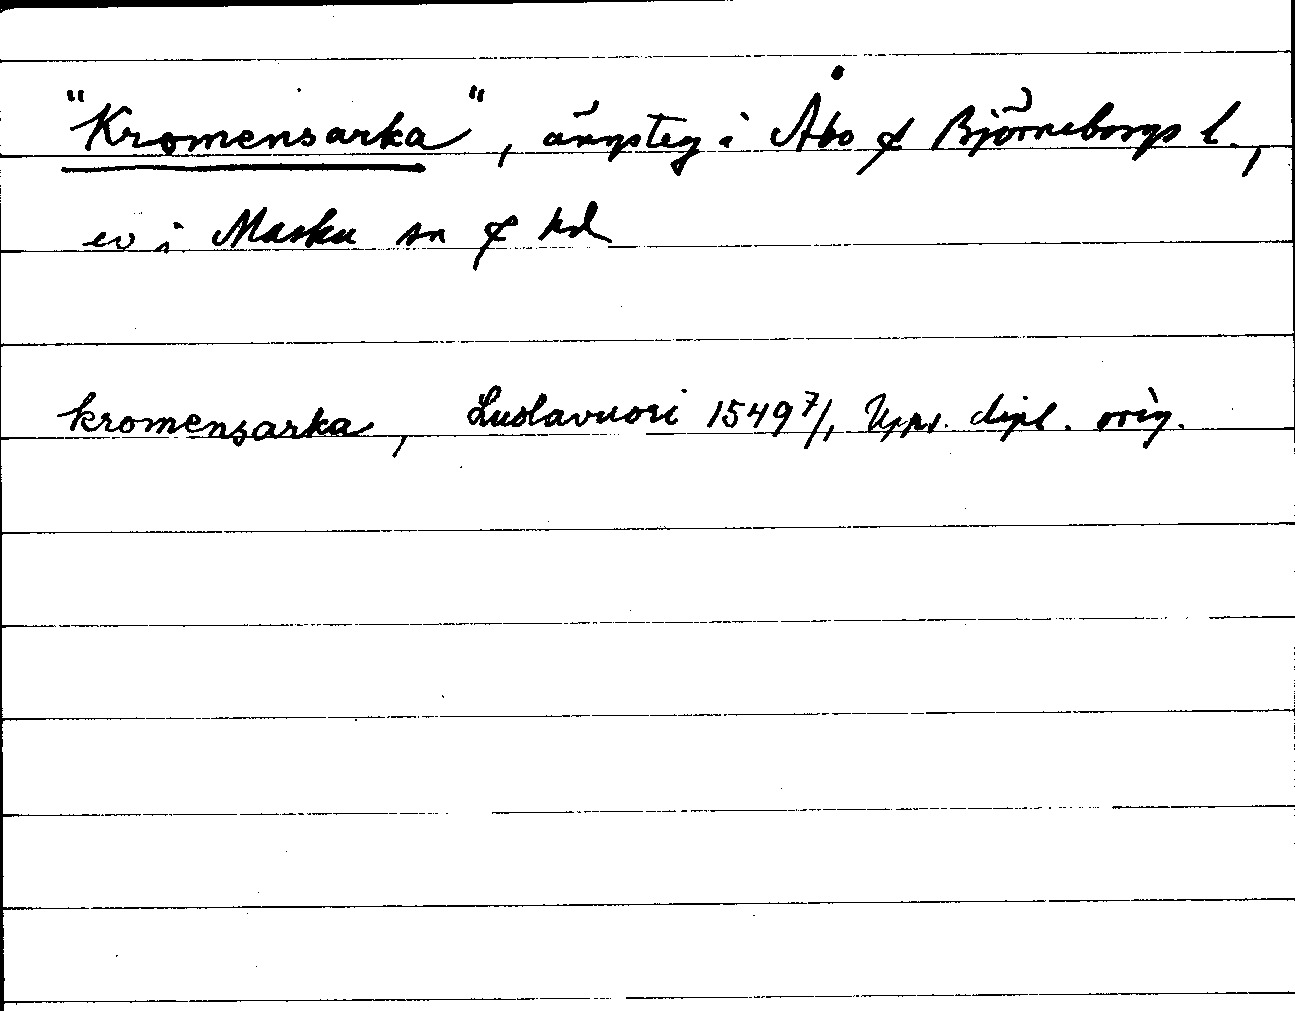 "Kromensarka", ängsteg i Åbo & Björneborgs l.,
ev i Masku sn & hd
kromensarka, Luslavuori 1549 7/1 Upps. dipl. orig.